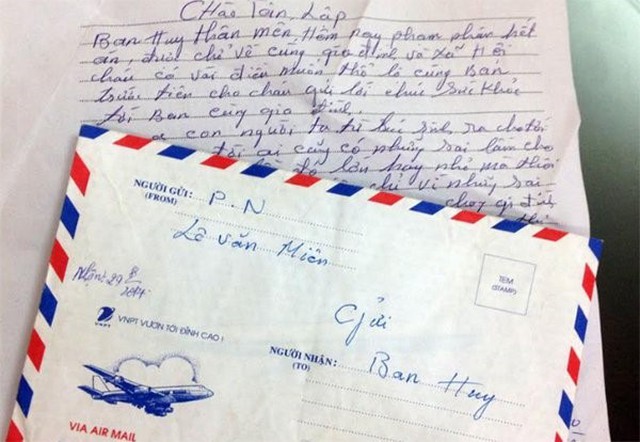 Chào Tân Lập
Ban Huy thân mến, Hôm nay phạm phán kết
án, được chỉ về cùng gia đình và xã Hội
cháu có vài điều muốn thổ lộ cùng Ban
trước tiên cho cháu gửi lời chúc sức khỏe
tới Ban cùng gia đình.
con người ta từ lúc sinh ra cho tới
tới ai cũng có những sai lầm cho
lớn hay nhỏ mà thôi
chỉ vì những sai
gia đình
NGƯỜI GỬI: P.N
(FROM)
Lê Văn Miên
TEM
(STAMP)
Nhận: 29
VNPT
VNPT VƯƠN TỚI ĐỈNH CAO!
Gửi
NGƯỜI NHẬN: Ban Huy
(TO)
VIA AIR MAIL